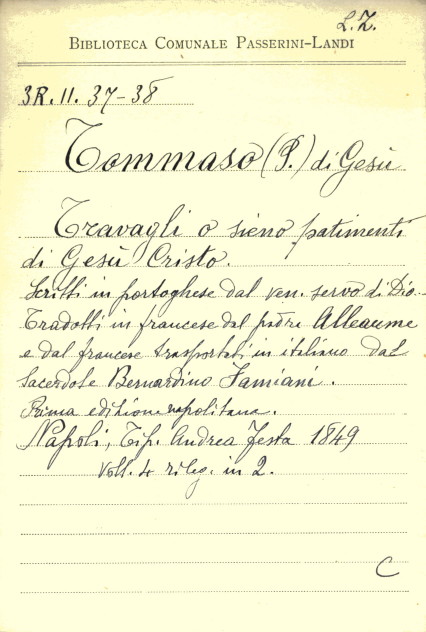 L.Z.
BIBLIOTECA COMUNALE PASSERINI-LANDI
3R.II. 37-38
Tommaso (P.) di Gesù
Travagli o sieno patimenti
di Gesù Cristo.
Scritti in portoghese dal ven. servo di Dio -
Tradotti in francese dal padre Alleaume
e dal francese trasportati in italiano dal
Sacerdote Bernardino Famiani.
Prima edizione napolitana.
Napoli, Tip. Andrea Festa 1849
Voll. 4 rileg. in 2.
C